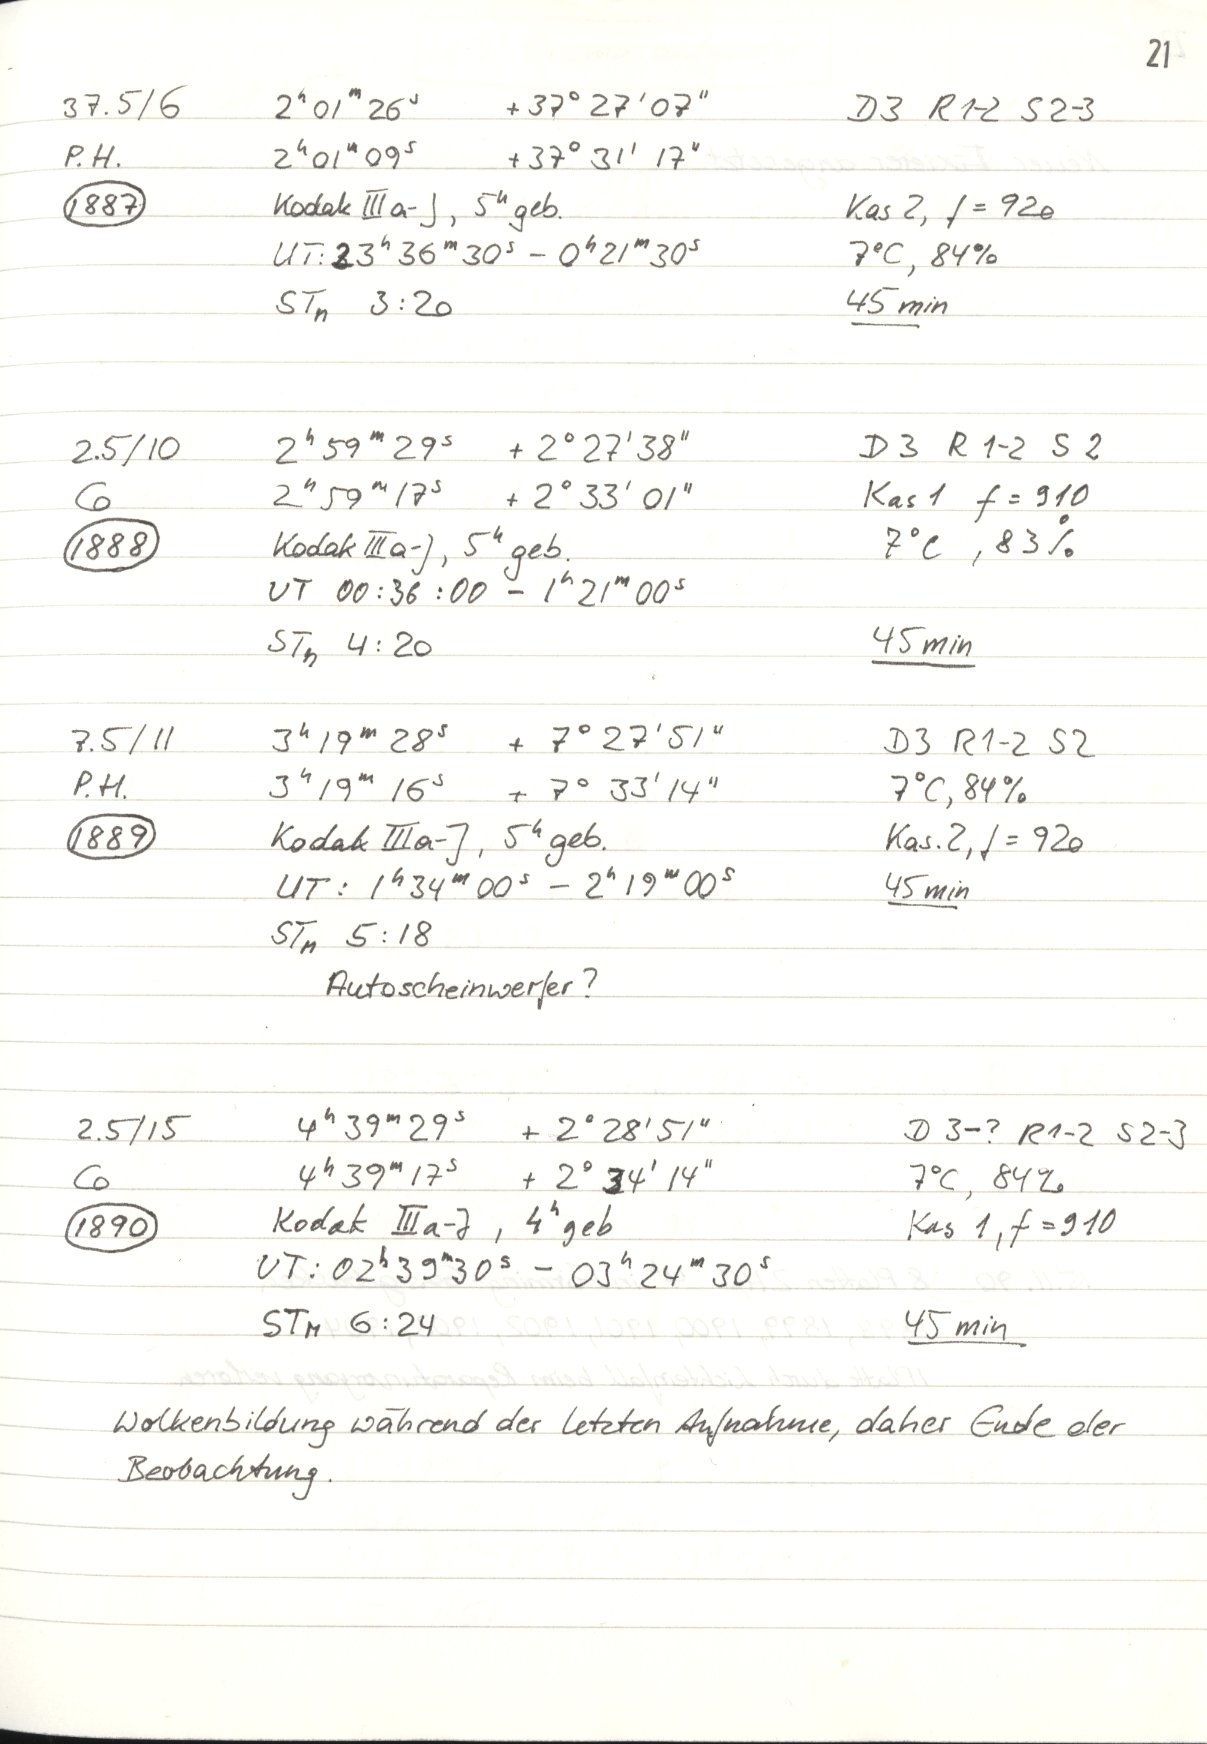 21
37.5/6 2ʰ01ᵐ26ˢ +37°27'07" D3 R1-2 S2-3
P.H. 2ʰ01ᵐ09ˢ +37°31'17"
1887 Kodak IIIa-J, 5ʰ geb. Kas 2, f = 920
UT: 23ʰ36ᵐ30ˢ – 0ʰ21ᵐ30ˢ 7°C, 84%
STₙ 3:20 45 min
2.5/10 2ʰ59ᵐ29ˢ +2°27'38" D3 R1-2 S2
Co 2ʰ59ᵐ17ˢ +2°33'01" Kas 1 f = 910
1888 Kodak IIIa-J, 5ʰ geb. 7°C, 83%
UT 00:36:00 – 1ʰ21ᵐ00ˢ
STₙ 4:20 45 min
7.5/11 3ʰ19ᵐ28ˢ + 7°27'51" D3 R1-2 S2
P.H. 3ʰ19ᵐ16ˢ + 7°33'14" 7°C, 84%
1889 Kodak IIIa-J, 5ʰ geb. Kas. 2, f = 920
UT: 1ʰ34ᵐ00ˢ – 2ʰ19ᵐ00ˢ 45 min
STₘ 5:18
Autoscheinwerfer?
2.5/15 4ʰ39ᵐ29ˢ +2°28'51" D 3-? R1-2 S2-3
Co 4ʰ39ᵐ17ˢ +2°34'14" 7°C, 84%
1890 Kodak IIIa-J, 4ʰ geb Kas 1, f = 910
UT: 02ʰ39ᵐ30ˢ – 03ʰ24ᵐ30ˢ
STₘ 6:24 45 min
Wolkenbildung während der letzten Aufnahme, daher Ende der
Beobachtung.